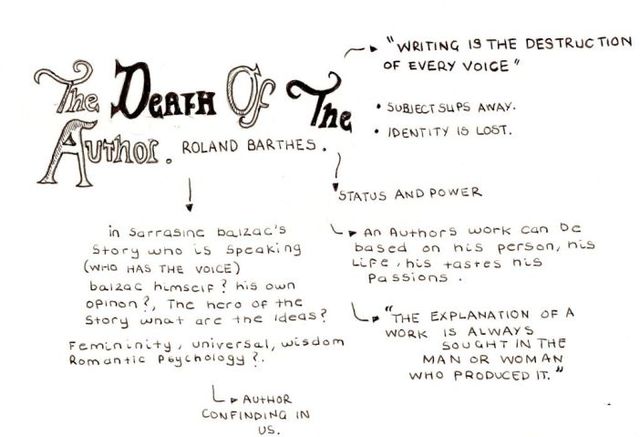 The Death Of The
Author. ROLAND BARTHES.
"WRITING IS THE DESTRUCTION
OF EVERY VOICE"
• SUBJECT SLIPS AWAY.
• IDENTITY IS LOST.
STATUS AND POWER
An Authors work can be
based on his person, his
Life, his tastes his
Passions.
"THE EXPLANATION OF A
WORK IS ALWAYS
SOUGHT IN THE
MAN OR WOMAN
WHO PRODUCED IT."
in Sarrasine balzac's
Story who is speaking
(WHO HAS THE VOICE)
balzac himself? his own
opinon?, The hero of the
Story what are the ideas?
Femininity, universal, wisdom
Romantic Psychology?.
AUTHOR
CONFINDING IN
US.